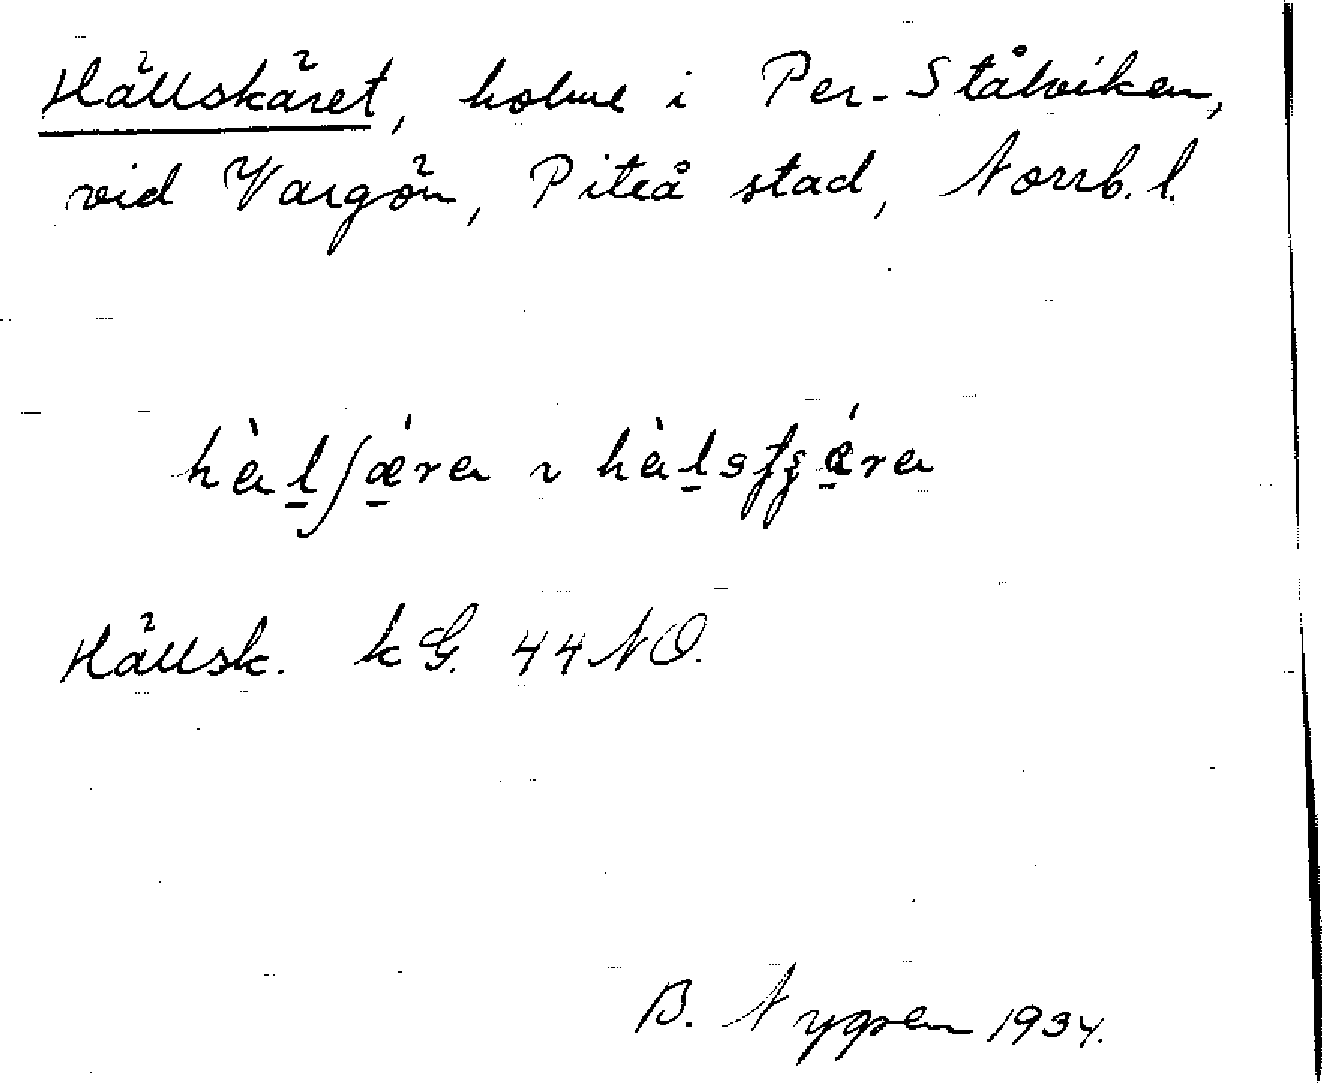 Hällskäret, holme i Per-Stålviken,
vid Vargön, Piteå stad, Norrb. l.
hàl̲ʃǽ̲ra ~ hàl̲sʃʒǽ̲ra
Hällsk. kG. 44 NO.
B. Nygren 1934.